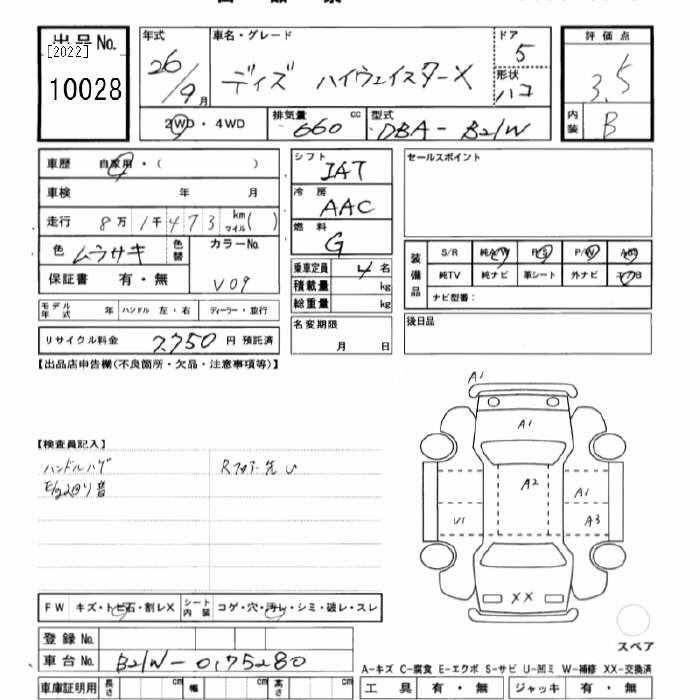 出品No.
[2022]
10028
年式 車名・グレード ドア
26/9月 デイズ ハイウェイスターX 5
形状
ハコ
評価点
3.5
内装 B
2WD・4WD 排気量 660 cc 型式 DBA-B21W
車歴 自家用・( )
車検 年 月
走行 8万1千473 km マイル( )
色 ムラサキ 色替 カラーNo.
保証書 有・無 V09
モデル年式 年 ハンドル 左・右 ディーラー・並行
リサイクル料金 7,750 円 預託済
シフト IAT
冷房 AAC
燃料 G
乗車定員 4名
積載量 kg
総重量 kg
名変期限
月 日
セールスポイント
装備品 S/R 純A/W P/S P/W ABS
純TV 純ナビ 革シート 外ナビ エアB
ナビ型番:
後日品
【出品店申告欄(不良箇所・欠品・注意事項等)】
【検査員記入】
ハンドルハゲ
E/g2回り音
A1
A1
A2
A1
U1
A3
XX
FW キズ・トビ石・割レX シート内装 コゲ・穴・汚レ・シミ・破レ・スレ
スペア
登録No.
車台No. B21W-0175280
A-キズ C-腐食 E-エクボ S-サビ U-凹ミ W-補修 XX-交換済
車庫証明用 長さ cm 幅 cm 高さ cm
工具 有・無 ジャッキ 有・無